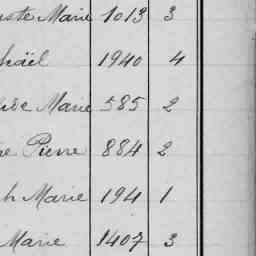 uste Marie 1013 3
haël 1940 4
Marie 585 2
Pierre 884 2
h Marie 194 1
Marie 1407 3